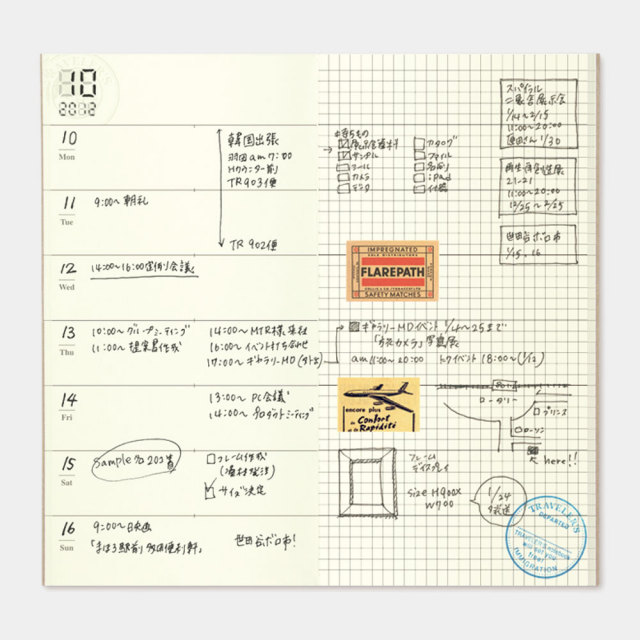 10
2012
10
Mon
韓国出張
羽田 am7:00
Hカウンター前
TR903便
TR902便
11
Tue
9:00〜 朝礼
12
Wed
14:00〜16:00 定例会議
13
Thu
10:00〜 グループミーティング
11:00〜 提案書作成
14:00〜 MTR様来社
16:00〜 イベント打ち合わせ
17:00〜 ギャラリーMD
14
Fri
13:00〜 PC会議
14:00〜 プロダクトミーティング
15
Sat
フレーム作成
サイズ決定
16
Sun
9:00〜 日映画
「まほろ駅前多田便利軒」
世田谷ボロ市!
持ちもの
サンプル
ツール
カメラ
カタログ
ファイル
名刺
iPad
付箋
スパイラル
1/14〜2/15
11:00〜20:00
1/30
21-21
11:00〜20:00
世田谷ボロ市
1/15.16
IMPREGNATED
FLAREPATH
SAFETY MATCHES
ギャラリーMDイベント 1/14〜25まで
写真展
am11:00〜20:00 トークイベント 18:00〜(1/12)
encore plus
de Confort
et la
Rapidité
ロータリー
プリンス
ローソン
here!!
フレーム
ディスプレイ
size H900×
W700
1/24
TRAVELER'S
DEPARTED
IMMIGRATION